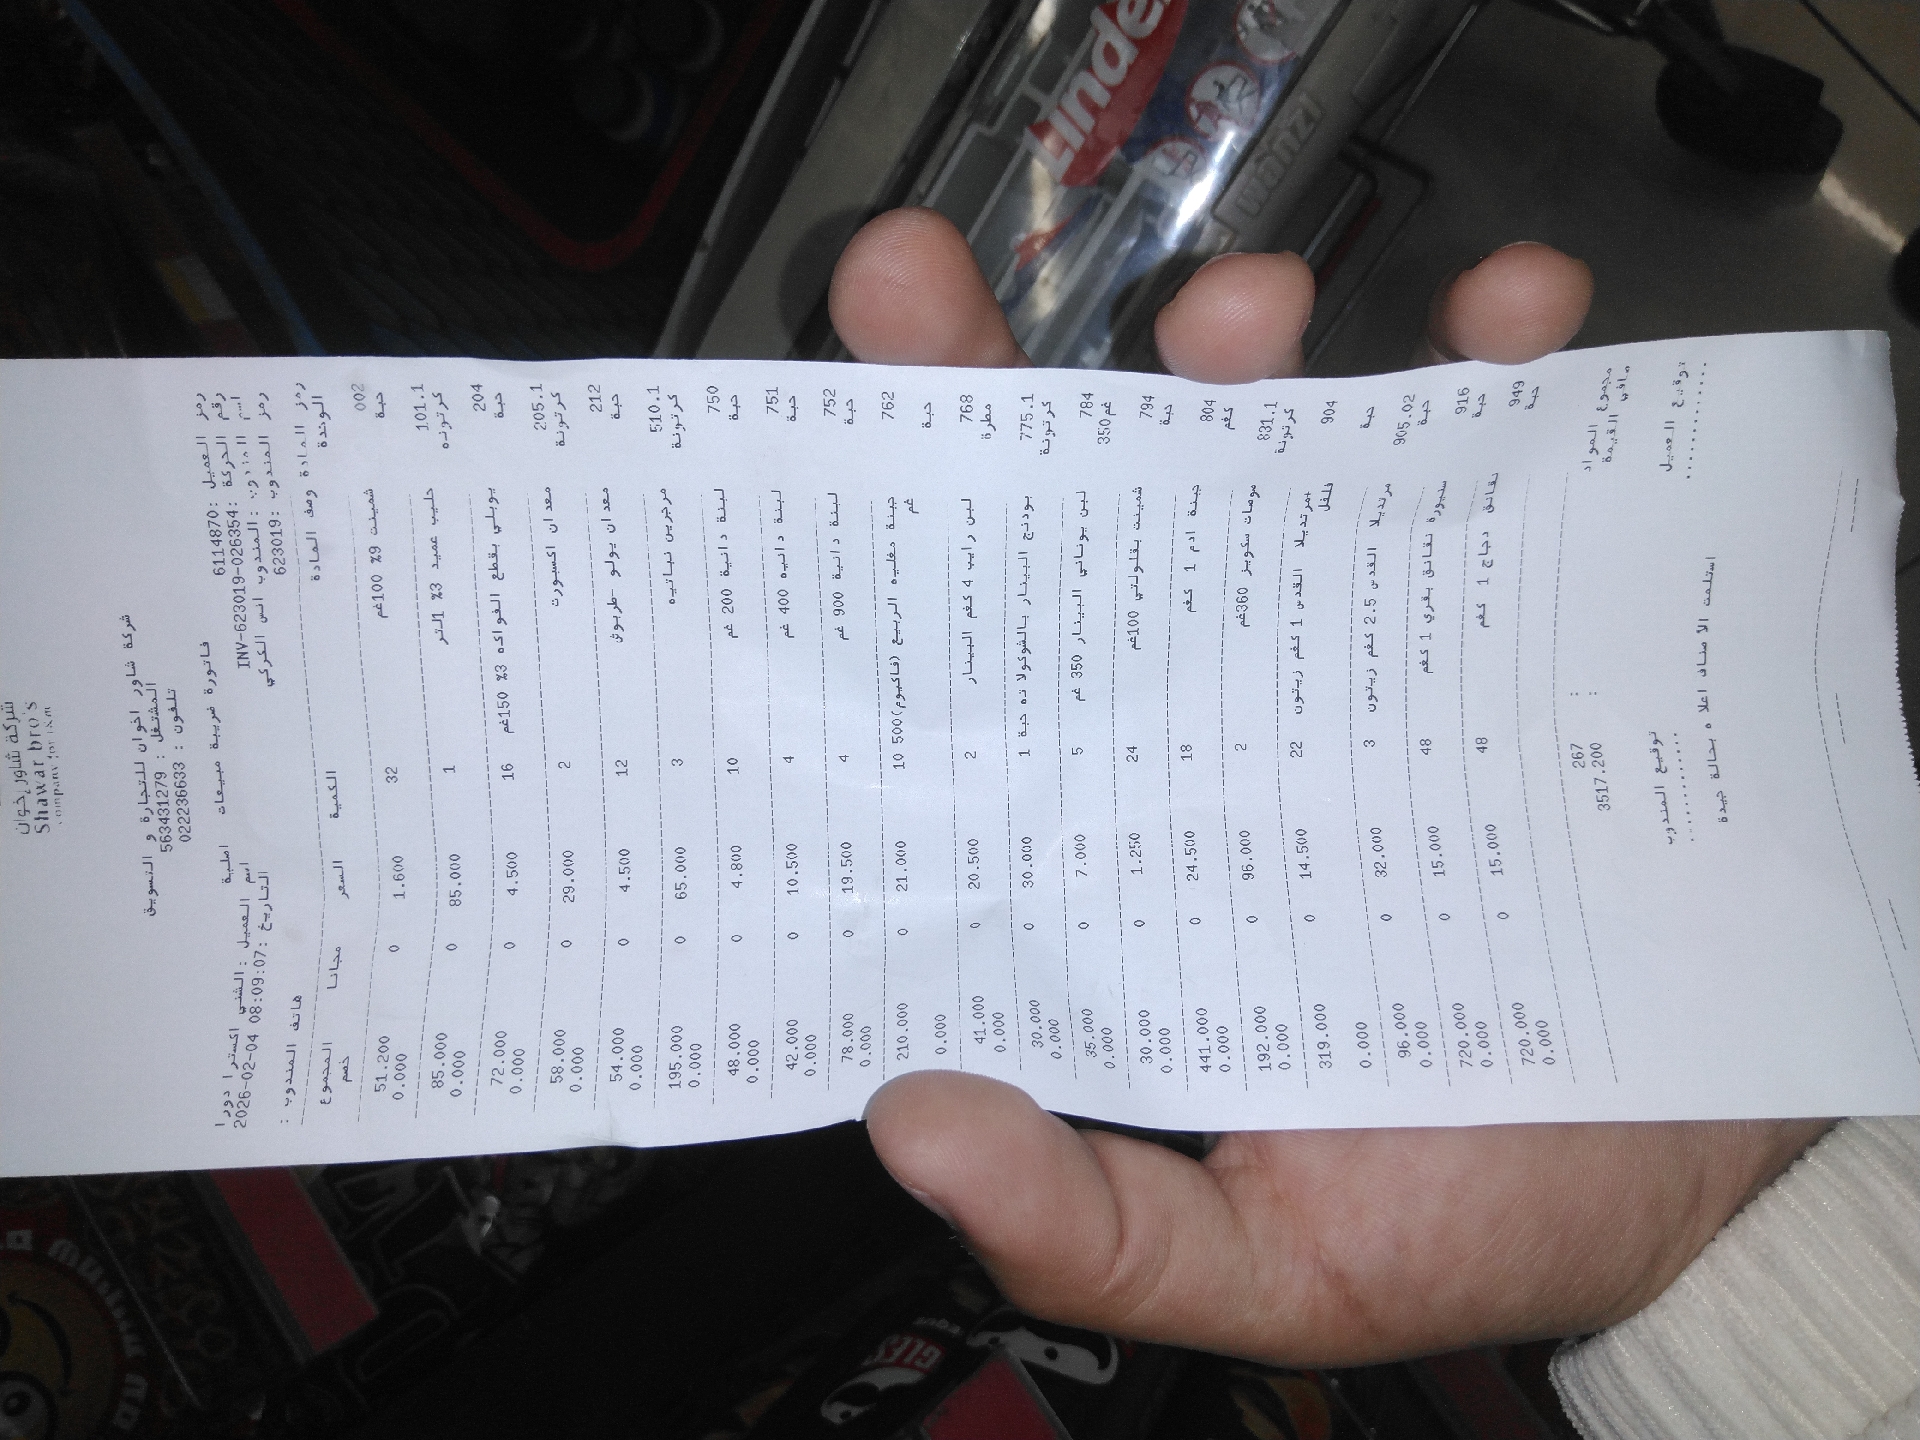 شركة شاور إخوان
Shawar bro's
شركة شاور اخوان للتجارة و التسويق
المشتغل : 563431279
تلفون : 022236633
فاتورة ضريبية مبيعات اصلية
رمز العميل :6114870 اسم العميل :الشني اكسترا دورا
رقم الحركة :INV-623019-026354 التاريخ :2026-02-04 08:09:07
اسم المندوب :المندوب انس الكركي
رمز المندوب :623019 هاتف المندوب :
رمز المادة وصف المادة الكمية السعر مجانا المجموع
الوحدة خصم
002 شمينت 9% 100غم 32 1.600 0 51.200
حبة 0.000
101.1 حليب عميد 3% 1لتر 1 85.000 0 85.000
كرتونه 0.000
204 يوبلي بقطع الفواكه 3% 150غم 16 4.500 0 72.000
حبة 0.000
205.1 معدان اكسبورت 2 29.000 0 58.000
كرتونة 0.000
212 معدان يولو طربوش 12 4.500 0 54.000
حبة 0.000
510.1 مرجرين نباتيه 3 65.000 0 195.000
كرتونة 0.000
750 لبنة دانية 200 غم 10 4.800 0 48.000
حبة 0.000
751 لبنة دانيه 400 غم 4 10.500 0 42.000
حبة 0.000
752 لبنة دانية 900 غم 4 19.500 0 78.000
حبة 0.000
762 جبنة مغليه الربيع (فاكيوم) 500 10 21.000 0 210.000
غم
حبة 0.000
768 لبن رايب 4 كغم البينار 2 20.500 0 41.000
مطرة 0.000
775.1 بودنج البينار بالشوكولاته حبة 1 30.000 0 30.000
كرتونة 0.000
784 لبن يوناني البينار 350 غم 5 7.000 0 35.000
350غم 0.000
794 شمينت بقلولتي 100غم 24 1.250 0 30.000
حبة 0.000
804 جبنة ادم 1 كغم 18 24.500 0 441.000
كغم 0.000
831.1 موصات سكويز 360غم 2 96.000 0 192.000
كرتونة 0.000
904 مرتديلا القدس 1 كغم زيتون+ 22 14.500 0 319.000
فلفل
حبة 0.000
905.02 مرتديلا القدس 2.5 كغم زيتون 3 32.000 0 96.000
حبة 0.000
916 سنيورة نقانق بقري 1 كغم 48 15.000 0 720.000
حبة 0.000
949 نقانق دجاج 1 كغم 48 15.000 0 720.000
حبة 0.000
مجموع المواد : 267
صافي القيمة : 3517.200
توقيع العميل توقيع المندوب
............ ............
استلمت الاصناف اعلاه بحالة جيدة
Linde
wanzl